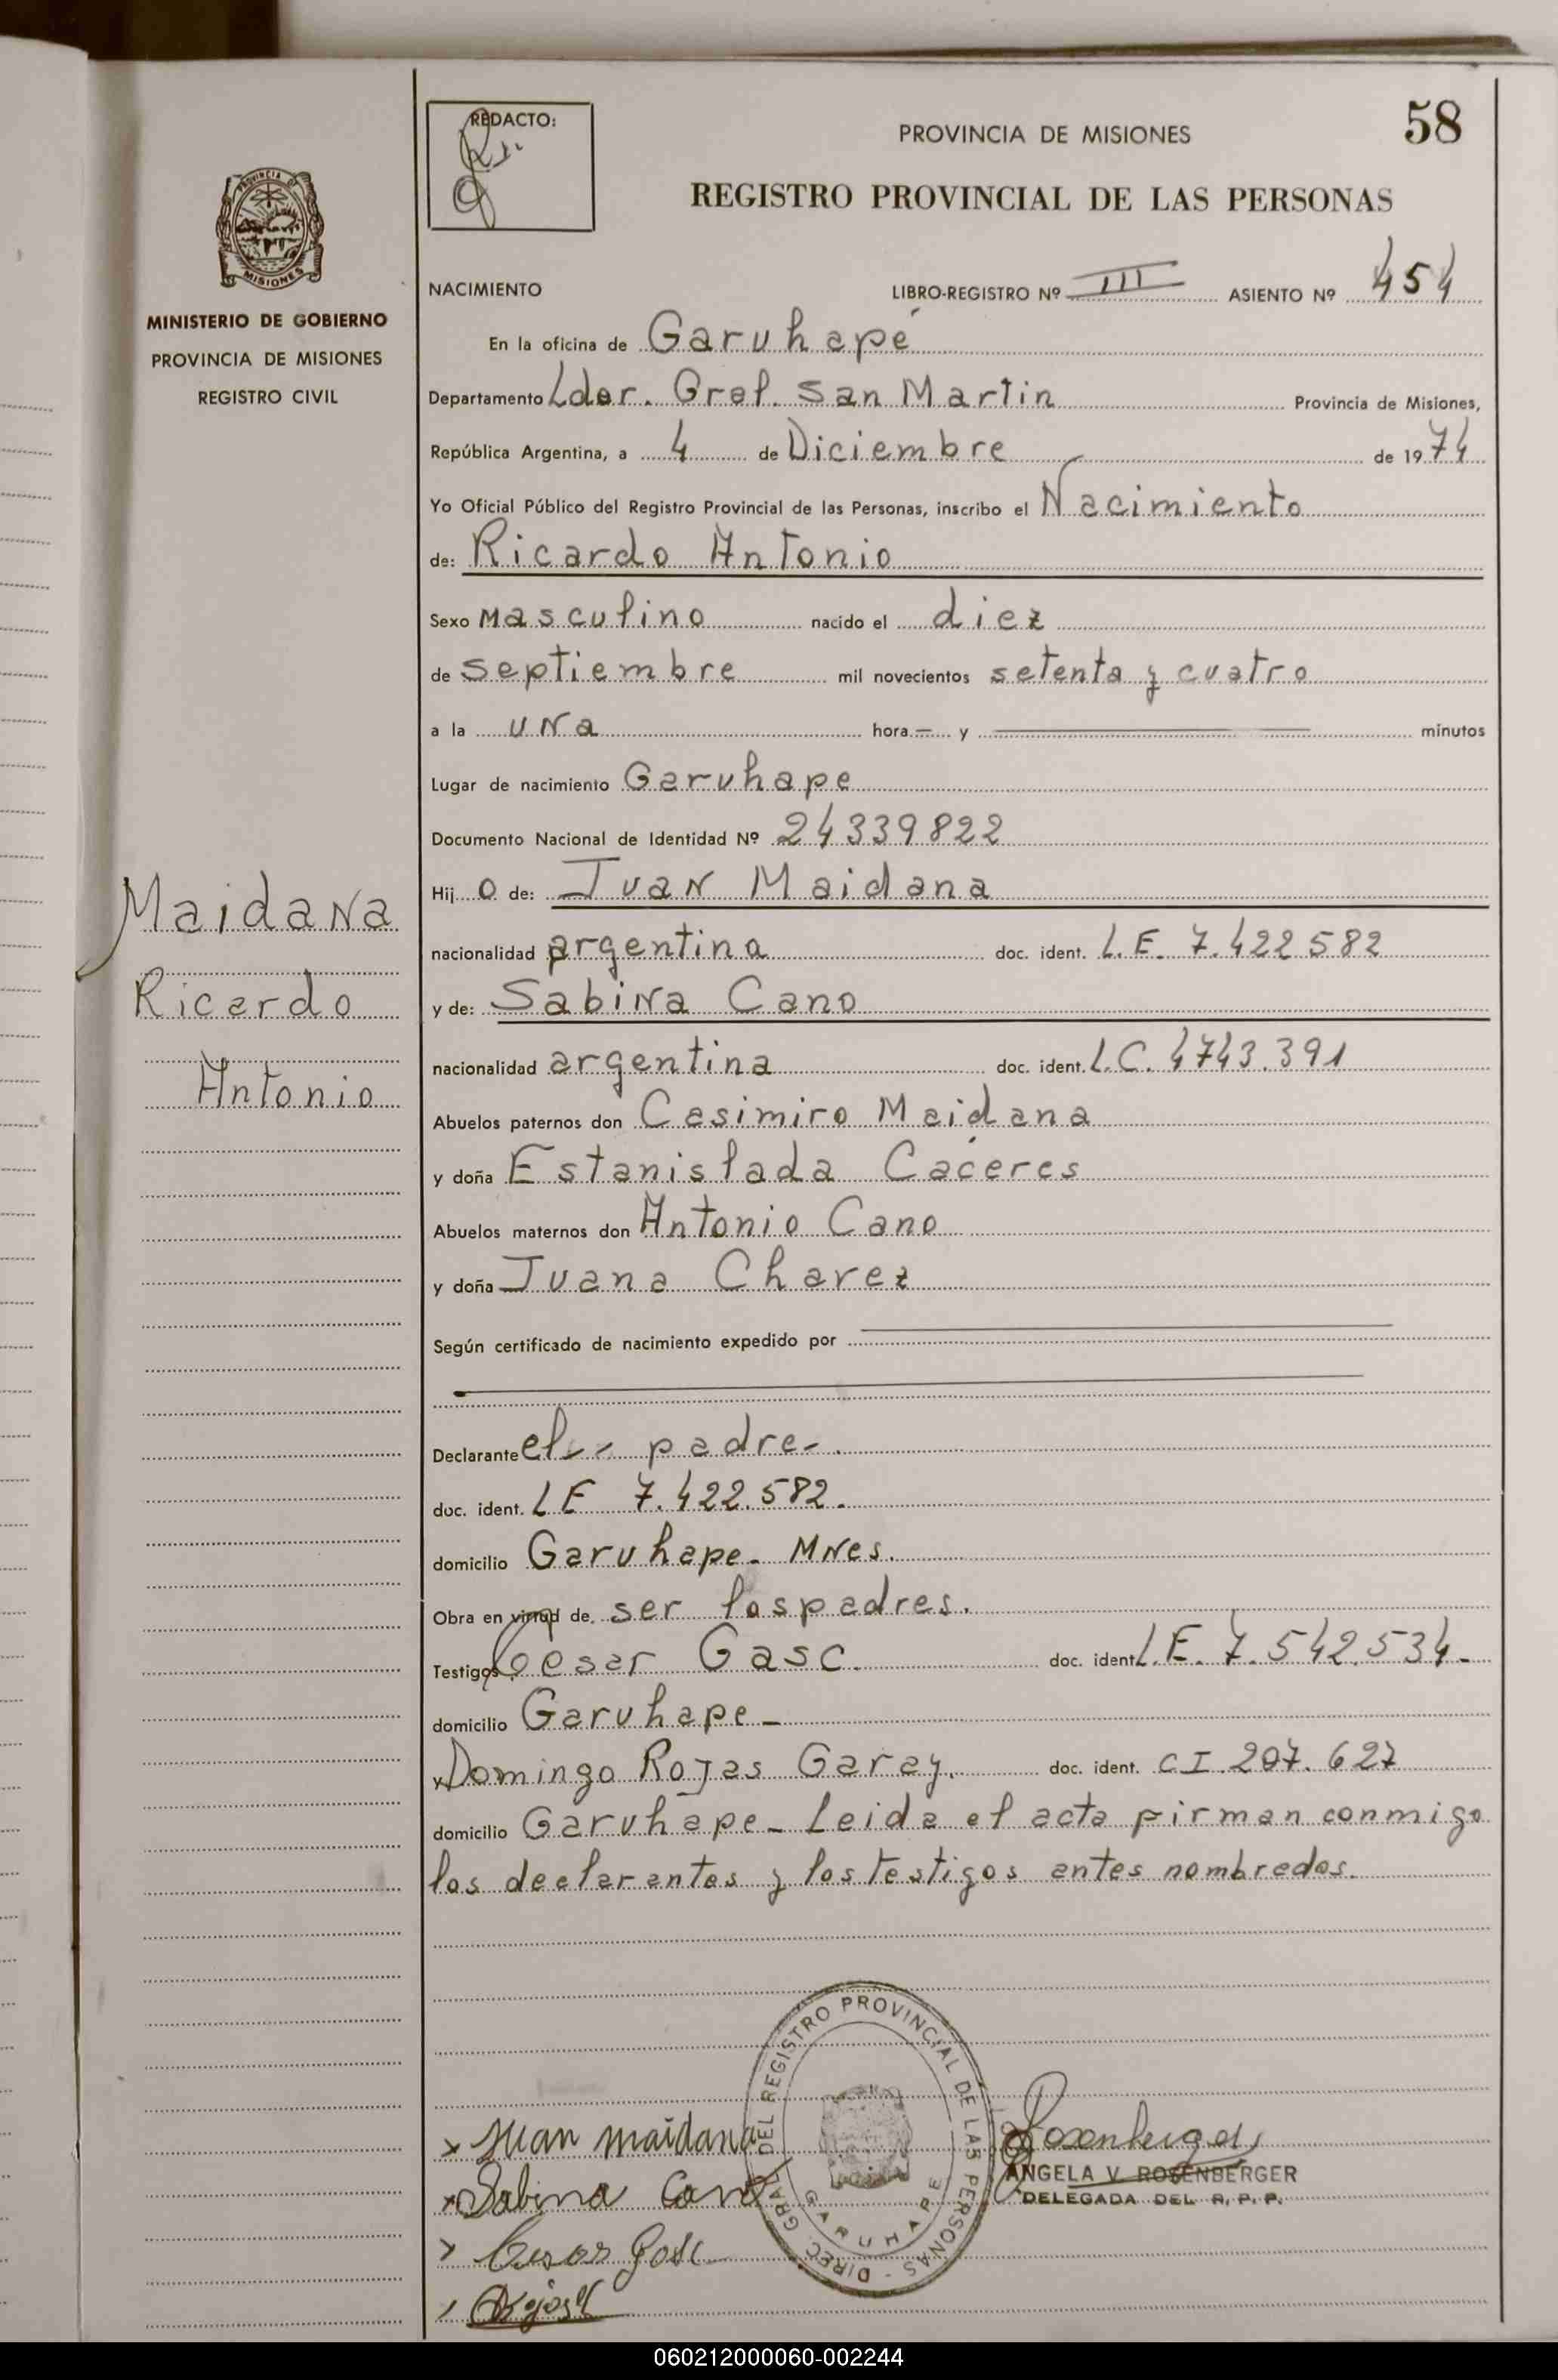 58
REDACTO:
PROVINCIA DE MISIONES
REGISTRO PROVINCIAL DE LAS PERSONAS
PROVINCIA DE
MISIONES
MINISTERIO DE GOBIERNO
PROVINCIA DE MISIONES
REGISTRO CIVIL
NACIMIENTO LIBRO-REGISTRO Nº III ASIENTO Nº 454
En la oficina de Garuhapé
Departamento Ldor. Gral. San Martin Provincia de Misiones,
República Argentina, a 4 de Diciembre de 1974
Yo Oficial Público del Registro Provincial de las Personas, inscribo el Nacimiento
de: Ricardo Antonio
Sexo Masculino nacido el diez
de septiembre mil novecientos setenta y cuatro
a la una hora — y — minutos
Lugar de nacimiento Garuhape
Documento Nacional de Identidad Nº 24339822
Hijo de: Juan Maidana
nacionalidad argentina doc. ident. L.E. 7.422582
y de: Sabina Cano
nacionalidad argentina doc. ident. L.C. 4743.391
Abuelos paternos don Casimiro Maidana
y doña Estanislada Cáceres
Abuelos maternos don Antonio Cano
y doña Juana Charez
Según certificado de nacimiento expedido por
Declarante el padre.
doc. ident. LE 7.422.582.
domicilio Garuhape. MNes.
Obra en virtud de ser los padres.
Testigos Cesar Gasc. doc. ident. L.E. 7.542.534.
domicilio Garuhape
y Domingo Rojas Garay. doc. ident. CI 207.627
domicilio Garuhape Leida el acta firman conmigo
los declarantes y los testigos antes nombrados.
Maidana
Ricardo
Antonio
x Juan maidana
x Sabina Cano
x Cesar Gasc
DIREC. GRAL. DEL REGISTRO PROVINCIAL DE LAS PERSONAS
GARUHAPE
Rosenberger
ANGELA V. ROSENBERGER
DELEGADA DEL R. P. P.
060212000060-002244